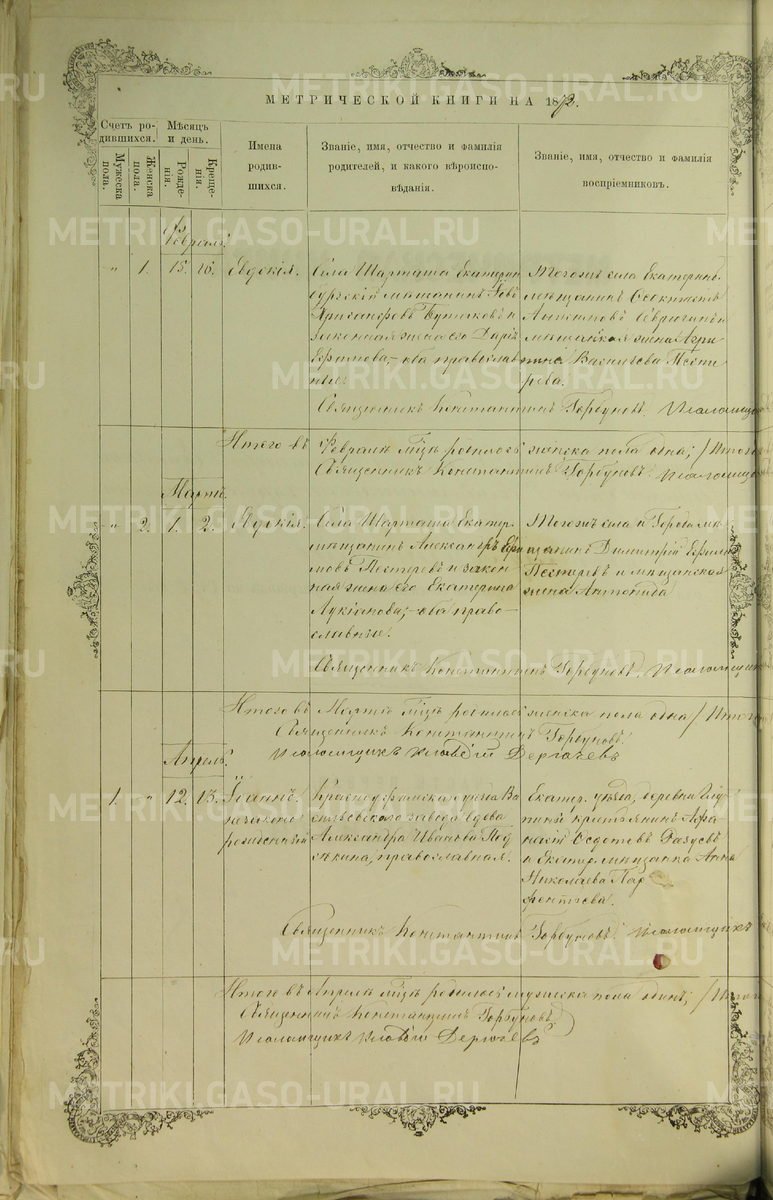 МЕТРИЧЕСКОЙ КНИГИ НА 1872.
Счетъ родившихся.
Мужеска пола.
Женска пола.
Мѣсяцъ и день.
Рожденія.
Крещенія.
Имена
родив-
шихся.
Званіе, имя, отчество и фамилія
родителей, и какого вѣроиспо-
вѣданія.
Званіе, имя, отчество и фамилія
воспріемниковъ.
Февраль.
" 1. 15. 16. Евдокія.
Села Шарташа Екатерин
бургскій мѣщанинъ
законная жена его Дарія
оба православ
ные.
Тогожъ села Екатеринб.
мѣщанинъ
мѣщанская жена Агри
пина Васильева Песте
рева.
Священникъ Константинъ Горбуновъ. Псаломщикъ
Итого въ Февралѣ мцѣ родилось женска пола одна; /Итого
Священникъ Константинъ Горбуновъ. Псаломщикъ
Мартъ.
" 2. 1. 2. Евдокія.
Села Шарташа Екатер.
мѣщанинъ Александръ Ефи
мовъ Пестеревъ и закон
ная жена его Екатерина
Лукіанова, оба право-
славные.
Тогожъ села и города мѣ
щанинъ Димитрій Ефимовъ
Пестеревъ и мѣщанская
жена Антонида
Священникъ Константинъ Горбуновъ. Псаломщикъ
Итого въ Мартѣ мцѣ родилось женска пола одна /Итого
Священникъ Константинъ Горбуновъ.
Псаломщикъ Дергачевъ
Апрѣль.
1. " 12. 13. Іоаннъ.
незаконно
рожденный
Красноуфимска уѣзда Ва
сильевскаго завода вдова
Александра Иванова Под
православная.
Екатер. уѣзда, деревни
крестьянинъ Афа
насій Федотовъ
и Екатер. мѣщанка Анна
Николаева Пар
фентьева.
Священникъ Константинъ Горбуновъ. Псаломщикъ
Итого въ Апрѣлѣ мцѣ родилось мужеска пола одинъ; /Итого
Священникъ Константинъ Горбуновъ
Псаломщикъ Дергачевъ
METRIKI.GASO-URAL.RU